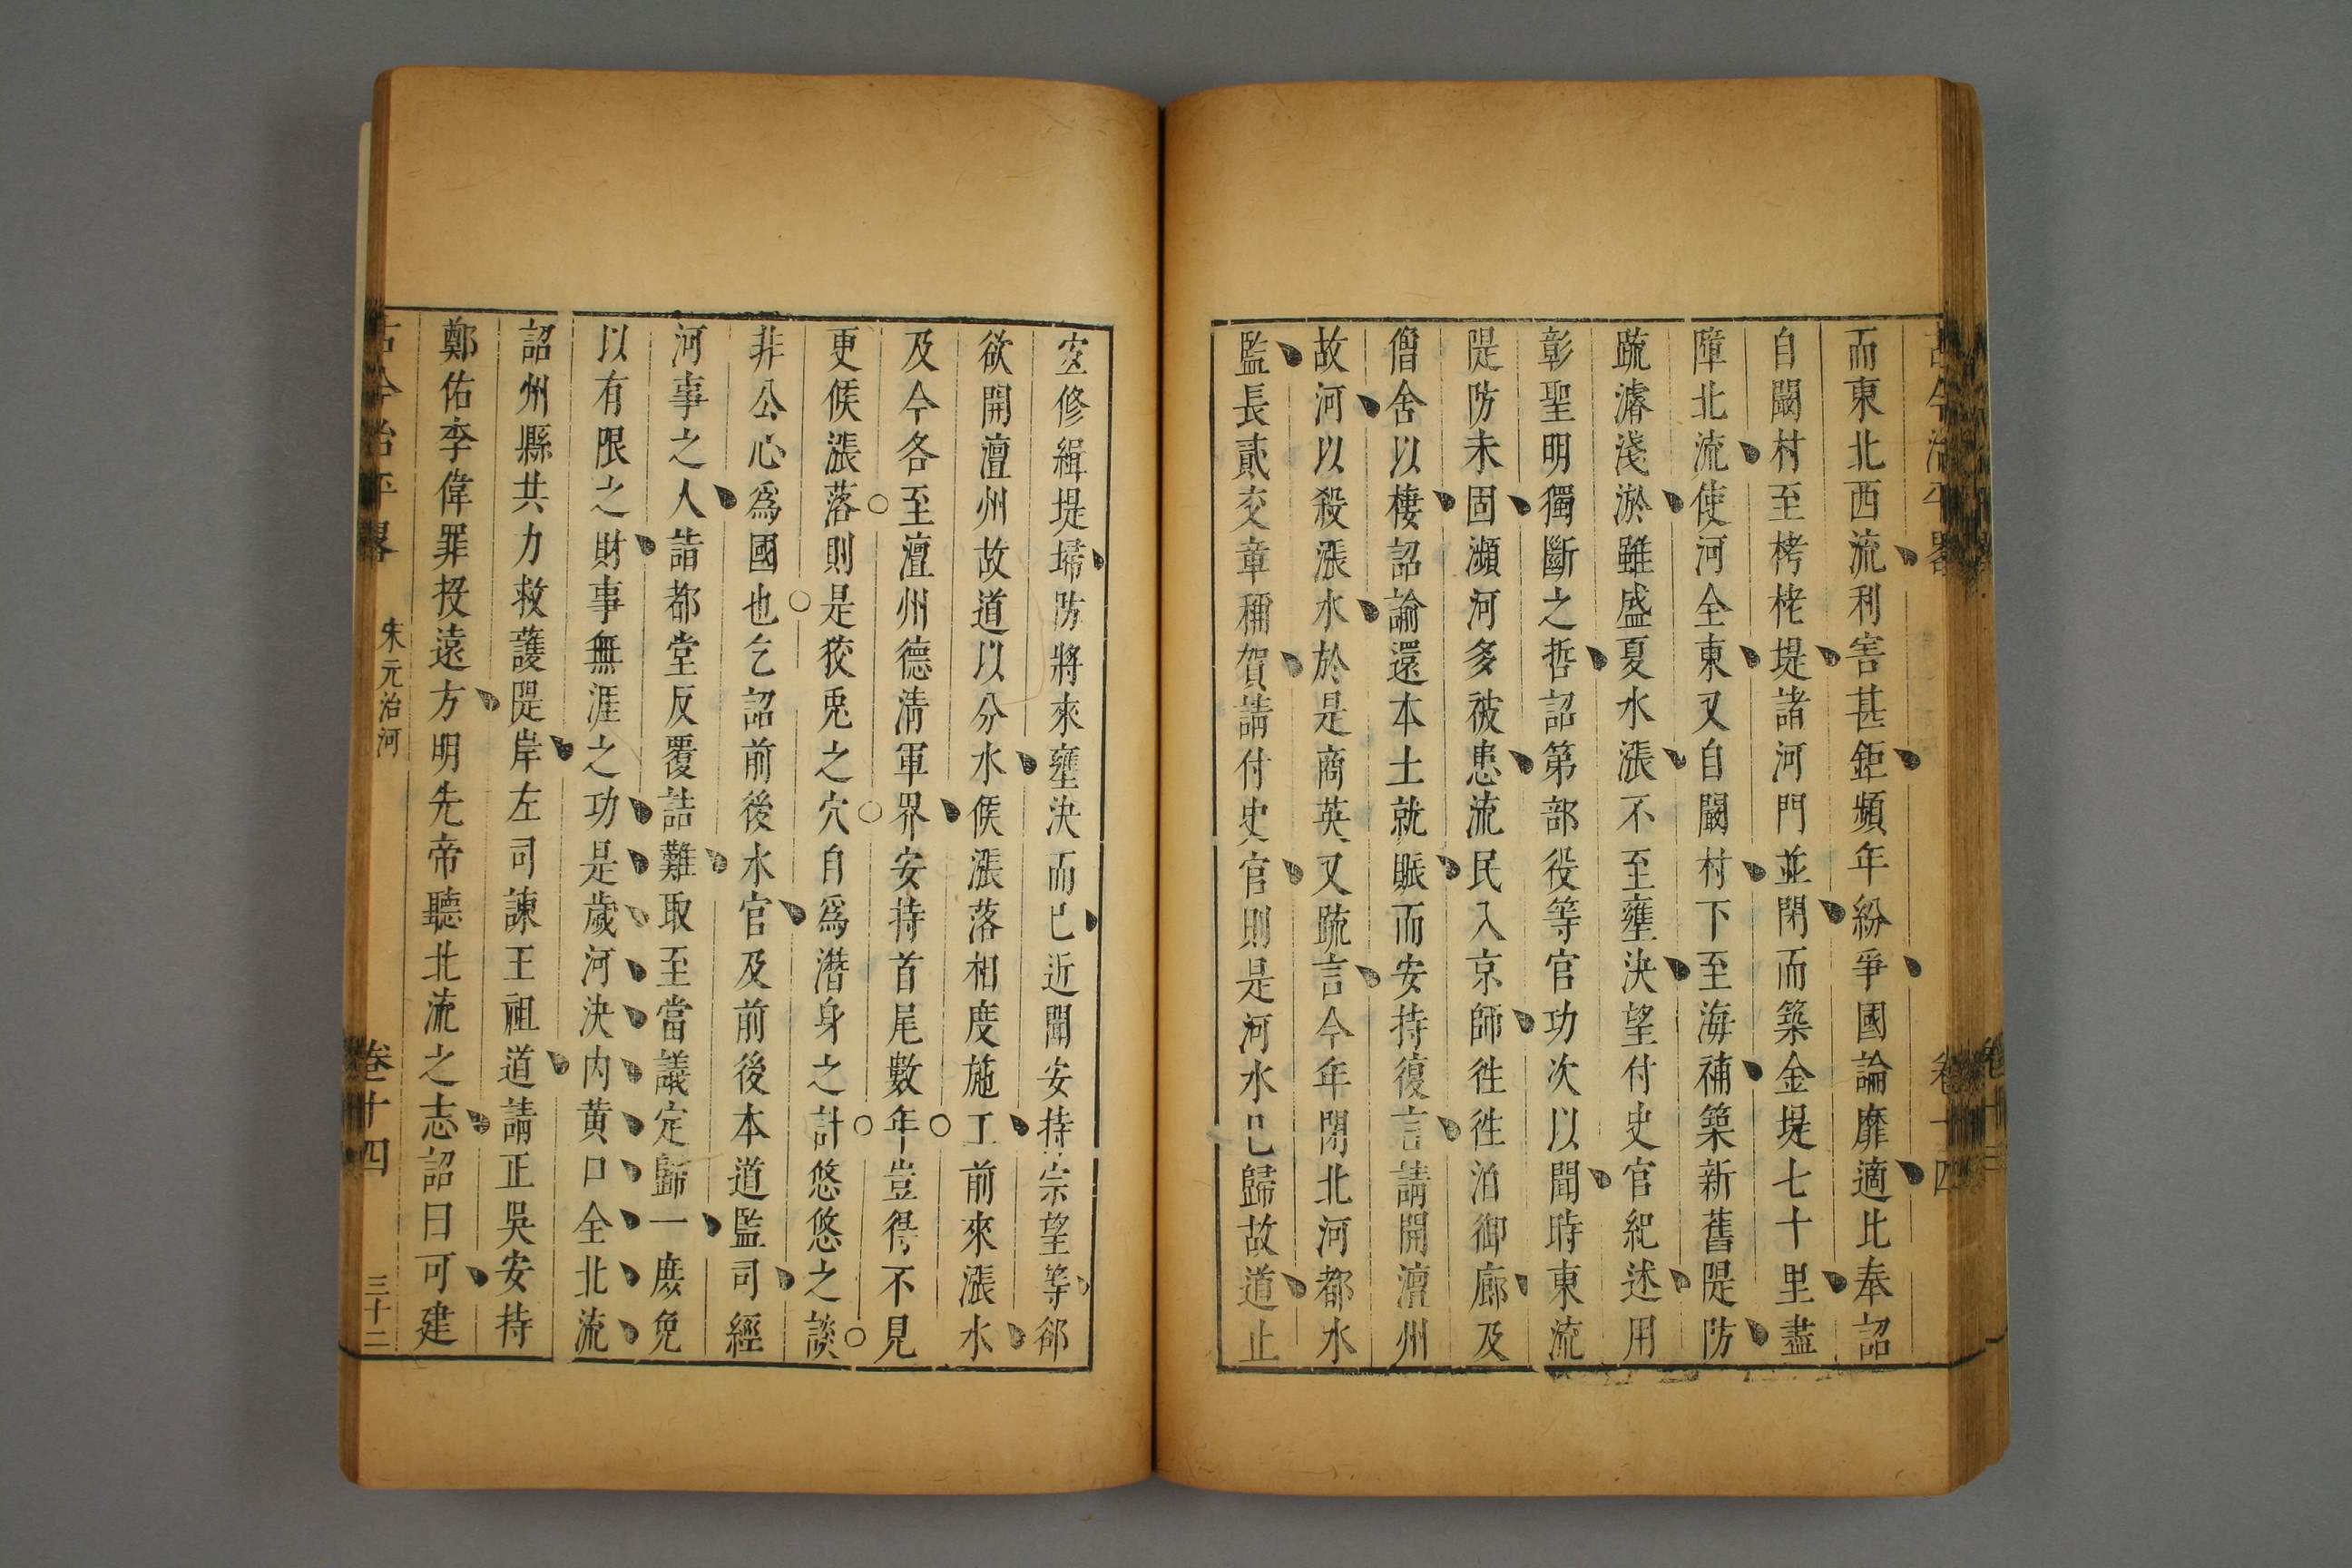 古今治平畧
卷十四
而東北西流利害甚鉅頻年紛爭國論靡適比奉詔
自闞村至栲栳堤諸河門並閉而築金堤七十里盡
障北流使河全東又自闞村下至海補築新舊隄防
疏濬淺淤雖盛夏水漲不至壅決望付史官紀述用
彰聖明獨斷之哲詔第部役等官功次以聞時東流
隄防未固瀕河多被患流民入京師徃徃泊御廊及
僧舍以棲詔諭還本土就賑而安持復言請開澶州
故河以殺漲水於是商英又疏言今年閉北河都水
監長貳交章稱賀請付史官則是河水已歸故道止
宐修緝堤埽防將來壅決而已近聞安持宗望等郤
欲開澶州故道以分水候漲落相度施工前來漲水
及今各至澶州德清軍界安持首尾數年豈得不見
更候漲落則是狡兎之穴自爲潛身之計悠悠之談
非公心爲國也乞詔前後水官及前後本道監司經
河事之人詣都堂反覆詰難取至當議定歸一庶免
以有限之財事無涯之功是歲河決內黃口全北流
詔州縣共力救護隄岸左司諫王祖道請正吳安持
鄭佑李偉罪投遠方明先帝聽北流之志詔曰可建
古今治平畧
宋元治河
卷十四
三十二